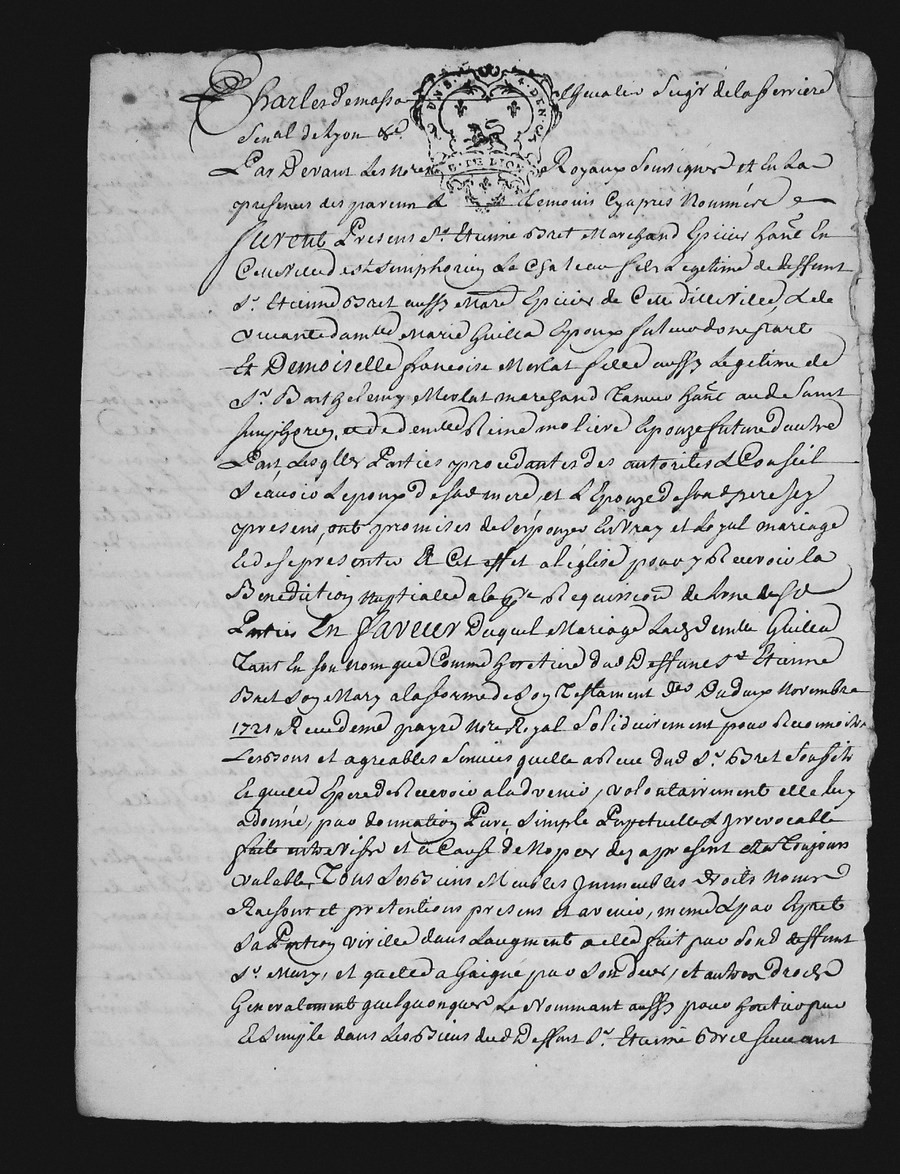 Charles demasso chevalier Seigr delaferriere
Senal de Lyon &a
DEUX S. 4. DEN.
G. DE LYON
Par Devant Les Nores Royaux Soussignes et En La
presence des parens & temoins Cyapres Nommés
furent Presens Sr. Etienne Bret Marchand Epicier habt En
Cette ville de st Simphorien Le Chateau fils Legitime de deffunt
Sr. Etienne Bret aussy Mard Epicier de Cette ditte ville, & de
vivante damlle Marie Guilla Epoux futur d'une part
Et Demoiselle francoise Merlat fille aussy Legitime de
Sr. Barthelemy Merlat marchand Tanneur habt aud Saint
Simphorien, et de demlle Reine moliere Epouze future d'autre
Part, Lesqlles Parties procedantes des autorites & Conseil
Scavoir Lepoux de Sad mere, et L'Epouze de Sond pere icy
presens, ont promises de S'epouzer En vray et Loyal mariage
Et de se presenter a Cet effet a l'église pour y Recevoir la
Benediction nuptialle a la pre Requisition de Lune desd
Parties En faveur Duquel Mariage Lad demlle Guilla
Tant En son nom que Comme heritiere dud Deffunt Sr Etienne
Bret Son Mary a la forme de Son Testament du deux Novembre
1721 Receu de me payre Nore Royal Solidairement pour Reconnoitre
Les Bons et agreables Services quelle a Receu dud Sr. Bret Son fils
Et quelle Espere de Recevoir a Ladvenir, volontairement elle luy
a donné, par donnation Pure, Simple Perpetuelle & jrrevocable
faite entre vifs et a Cause de Nopces des apresent et a Toujours
valable, Tous Ses Biens Meubles Jmmeubles droits Noms
Raisons et pretentions presens et avenir, meme & par Exprés
Sa Portion virille dans Laugment a elle fait par Sond deffunt
Sr. Mary, et quelle a Gaigné par Son deces, et autres droits
Generalement quelquonques Le Nommant aussy pour heritier pur
Et Simple dans Les Biens dud Deffunt Sr. Etienne Bret suivant